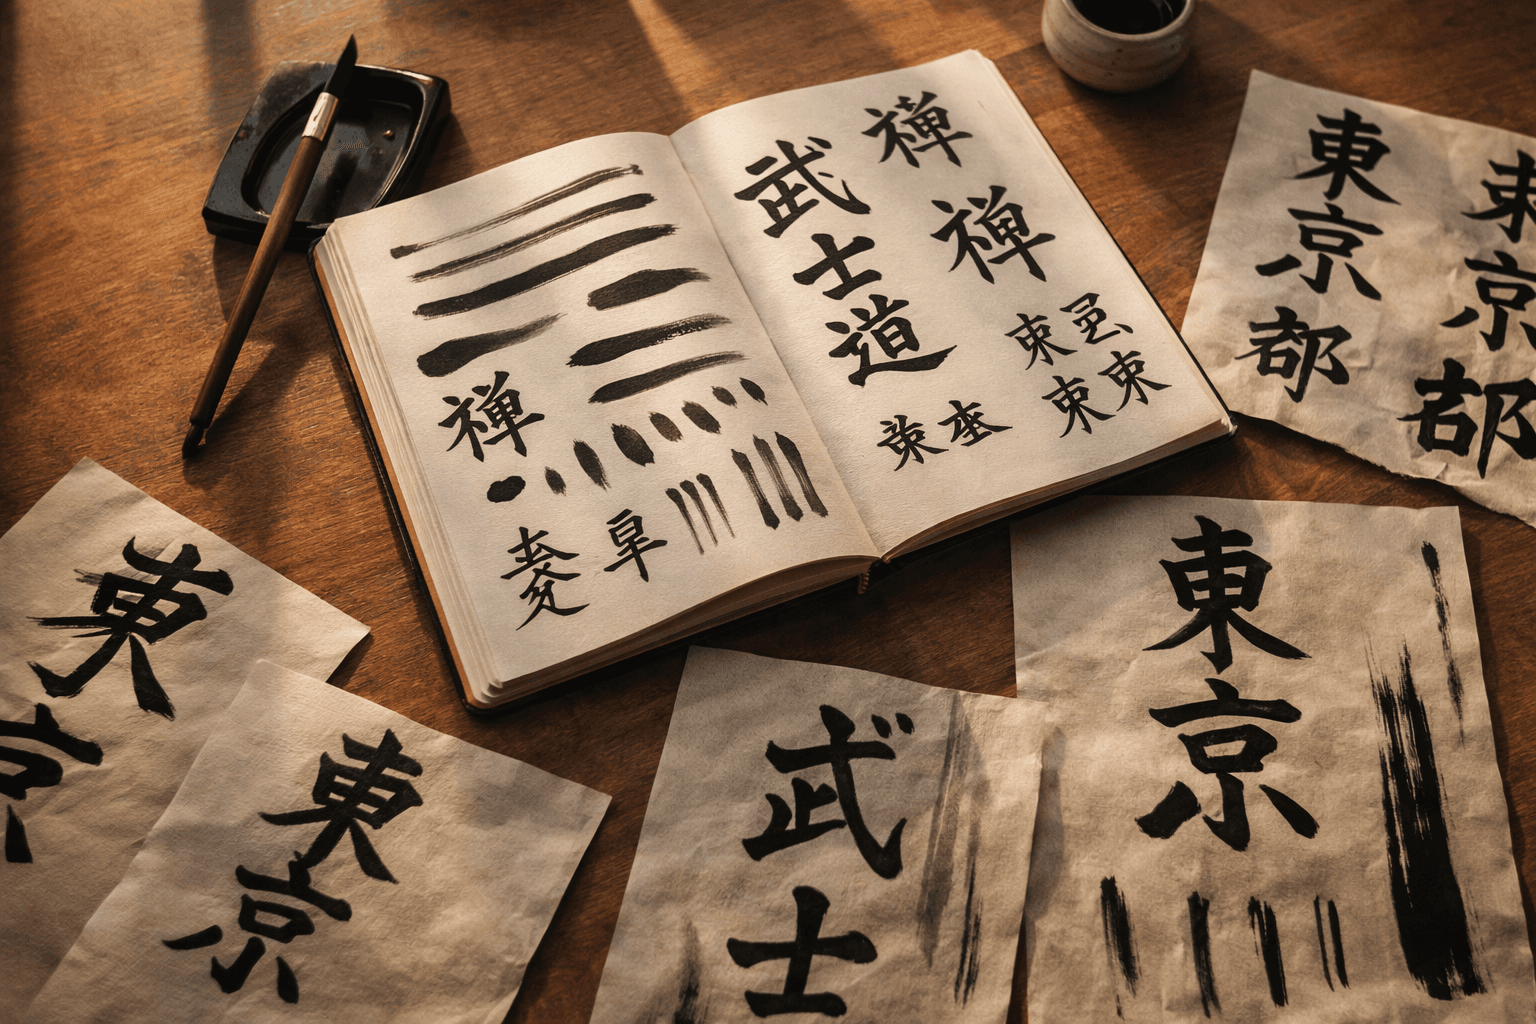 禅
武士道
禅
禅
東京都
東京都
東京
東京
武士
東京